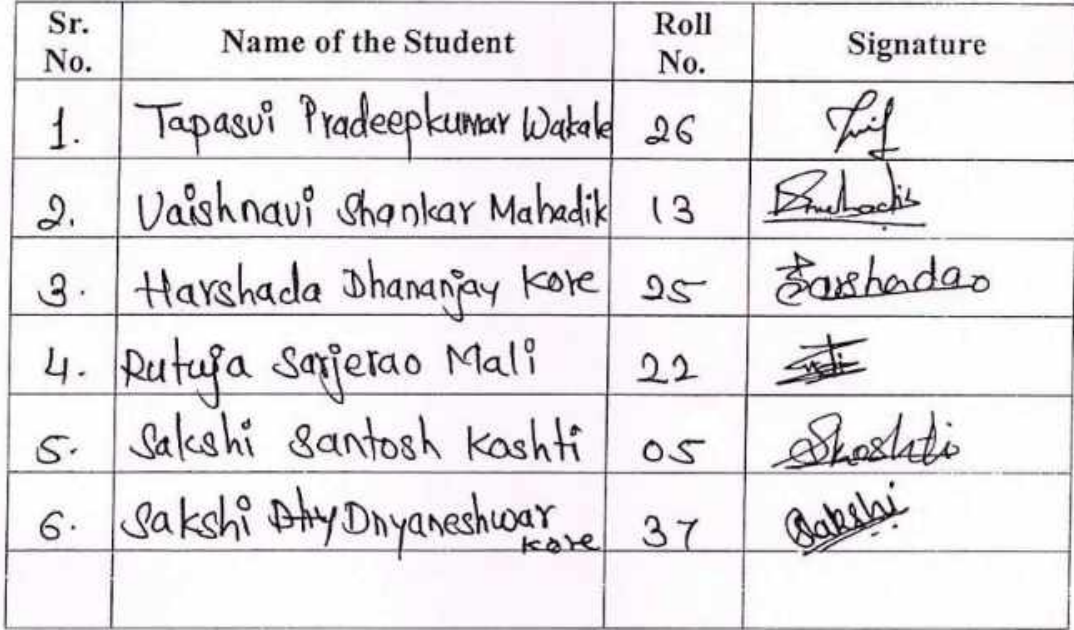 Sr. No. Name of the Student Roll No. Signature
1. Tapasvi Pradeepkumar Wakale 26
2. Vaishnavi Shankar Mahadik 13
3. Harshada Dhananjay Kore 25 Harshada
4. Rutuja Sarjerao Mali 22
5. Sakshi Santosh Koshti 05 Skoshti
6. Sakshi Dhy Dnyaneshwar Kore 37 Sakshi